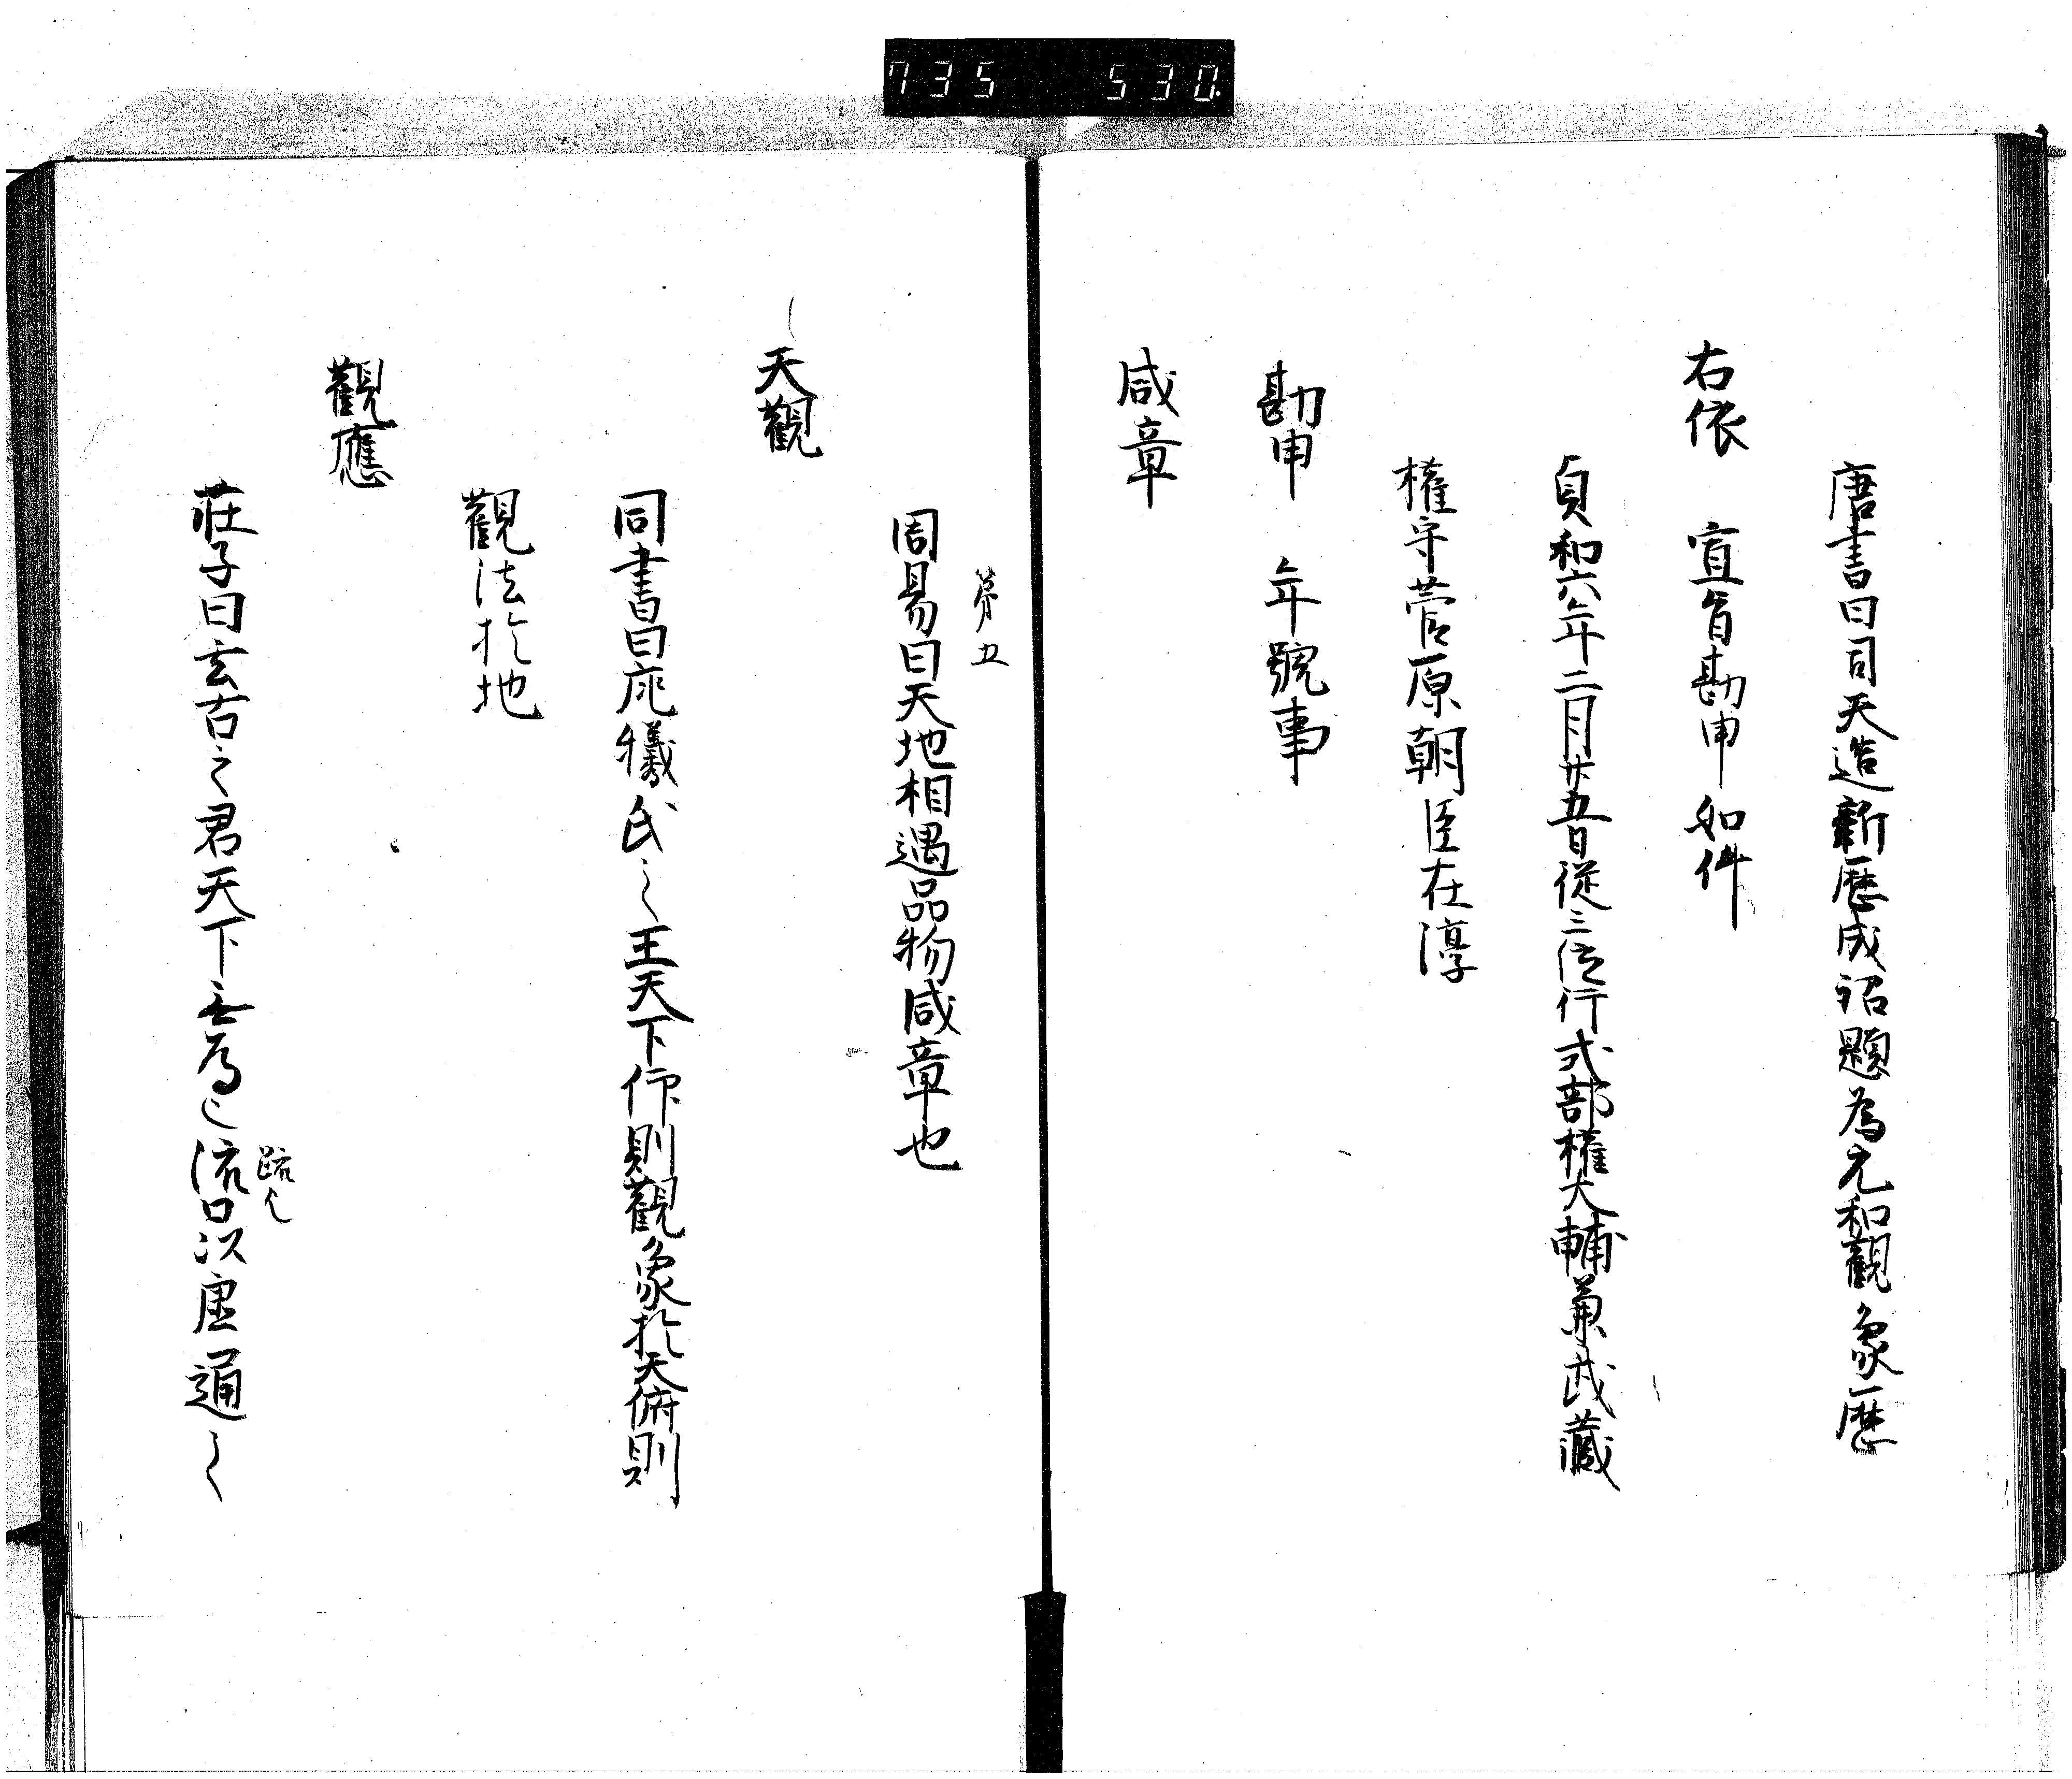 735 530
唐書曰司天造新曆成詔題為元和觀象曆
右依 宣旨勘申如件
貞和六年二月廿五日從三位行式部權大輔兼武藏
權守菅原朝臣在淳
勘申 年號事
咸章
第五
周易曰天地相遇品物咸章也
天觀
同書曰庖犧氏之王天下仰則觀象於天俯則
觀法於地
觀應
莊子曰玄古之君天下無為也
疏
以通之